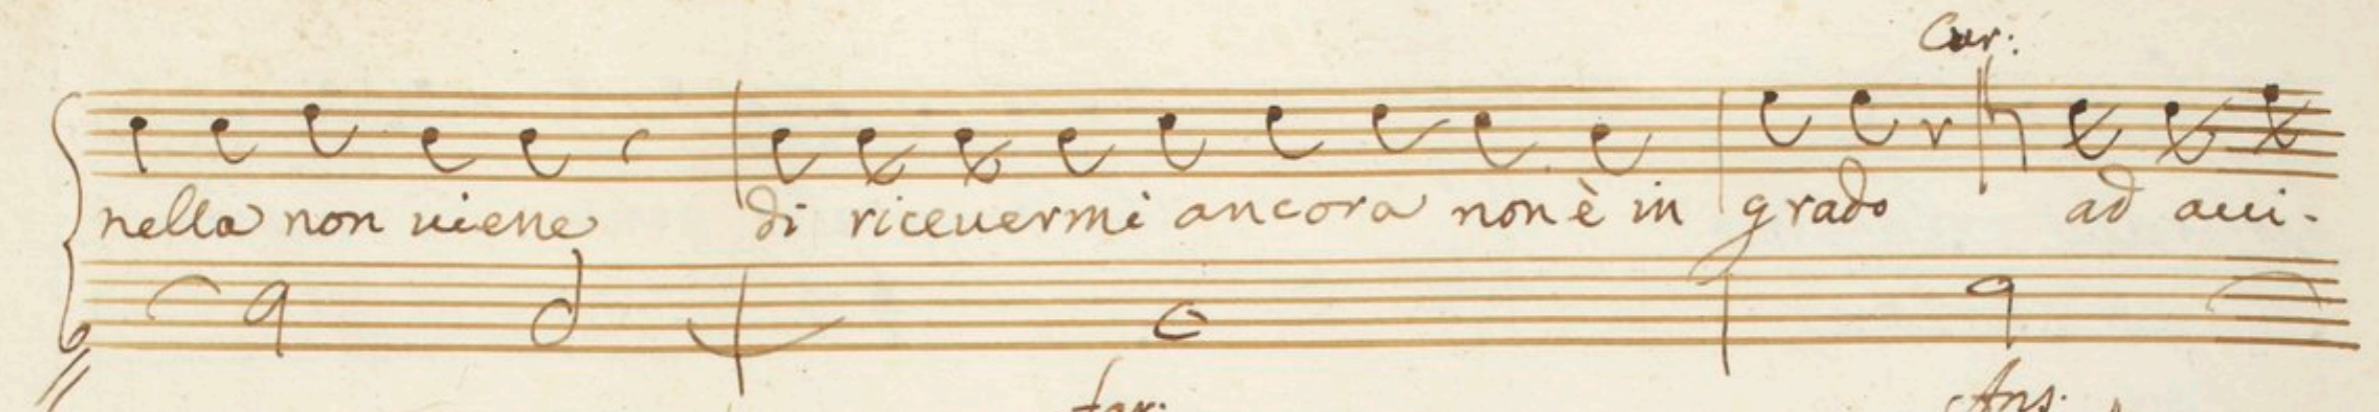 Car:
nella non uiene di riceuermi ancora non è in grado ad aui-
Ans.